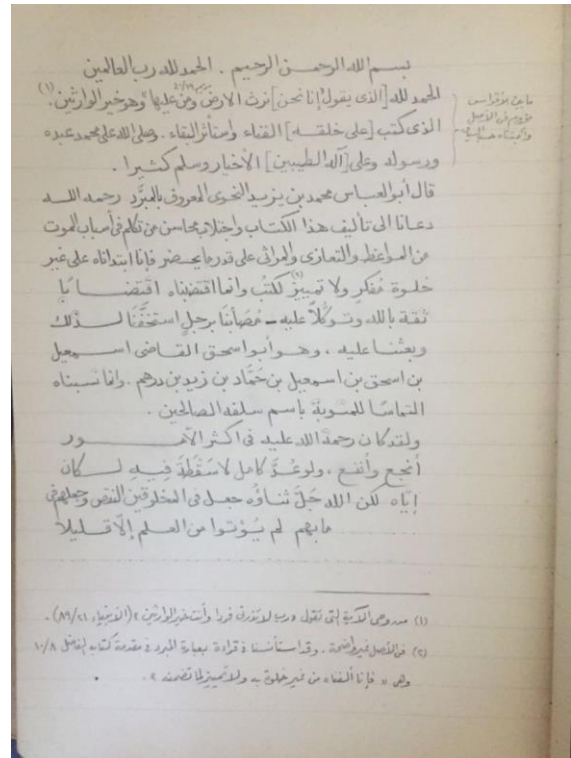 بسم الله الرحمن الرحيم . الحمد لله رب العالمين
الحمد لله [الذى يقول إنا نحن] نرث الارض ومن عليها "وهو خير الوارثين" (١)
الذى كتب [على خلقه] الفناء واستأثر البقاء . وصلى الله على محمد عبده
ورسوله وعلى [آله الطيبين] الأخيار وسلم كثيرا .
ما بين الأقواس
فى الأصل
قال أبو العباس محمد بن يزيد النحوى المعروف بالمبرَّد رحمه اللـه
دعانا الى تأليف هذا الكتاب واجتلاب محاسن من تكلم فى أسباب الموت
من المواعظ والتعازى والمراثى على قدر ما يحضر فإنا ابتدأناه على غير
خلوة مُفكرٍ ولا تمييزٍ (٢) لكتُب وانما اقتضبناه اقتضـابًا
ثقة بالله وتـوكُّلاً عليه - مُصابُنا برجلٍ استخفَّنا لـذلك
وبعثنـا عليه . وهـو أبو اسحق القـاضى اسـمعيل
بن اسحق بن اسمعيل بن حَمَّاد بن زيد بن درهم . وانما نسبناه
التماسًا للمثـوبة باسم سلفه الصالحين .
ولقد كان رحمة الله عليه فى اكثر الأمـور
أنجع وأنفع ، ولو عُدَّ كامل لا سَقْطَةَ فِيهِ لـكان
إيّاه لكن الله جَلّ ثناؤُه جعل فى المخلوقين النقص وجعلهم فى
ما بهم لم يُـؤتـوا من العـلم إلّا قـليلاً
(١) من وحى الآية التى تقول رب لا تذرنى فردا وأنت خير الوارثين » (الأنبياء ٨٩/٢١) .
(٢) فى الأصل غير واضحة . وقد استأنسنا فى قراءة بعبارة المبرد فى مقدمة كتابه الفاضل ١٠/٨
وهى « فإنا ألفناه من غير خلوة به ولا تمييز لما تضمنه » .